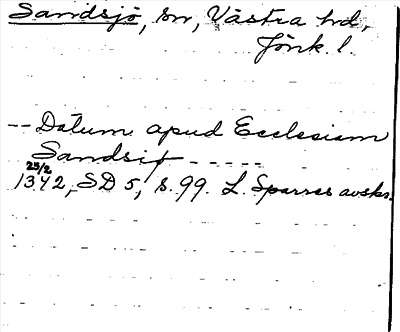 Sandsjö, sn, Västra hd,
Jönk. l.
-- Datum apud Ecclesiam
Sandsiø -----
25/2
1342, SD 5, s. 99. L. Sparres avskr.